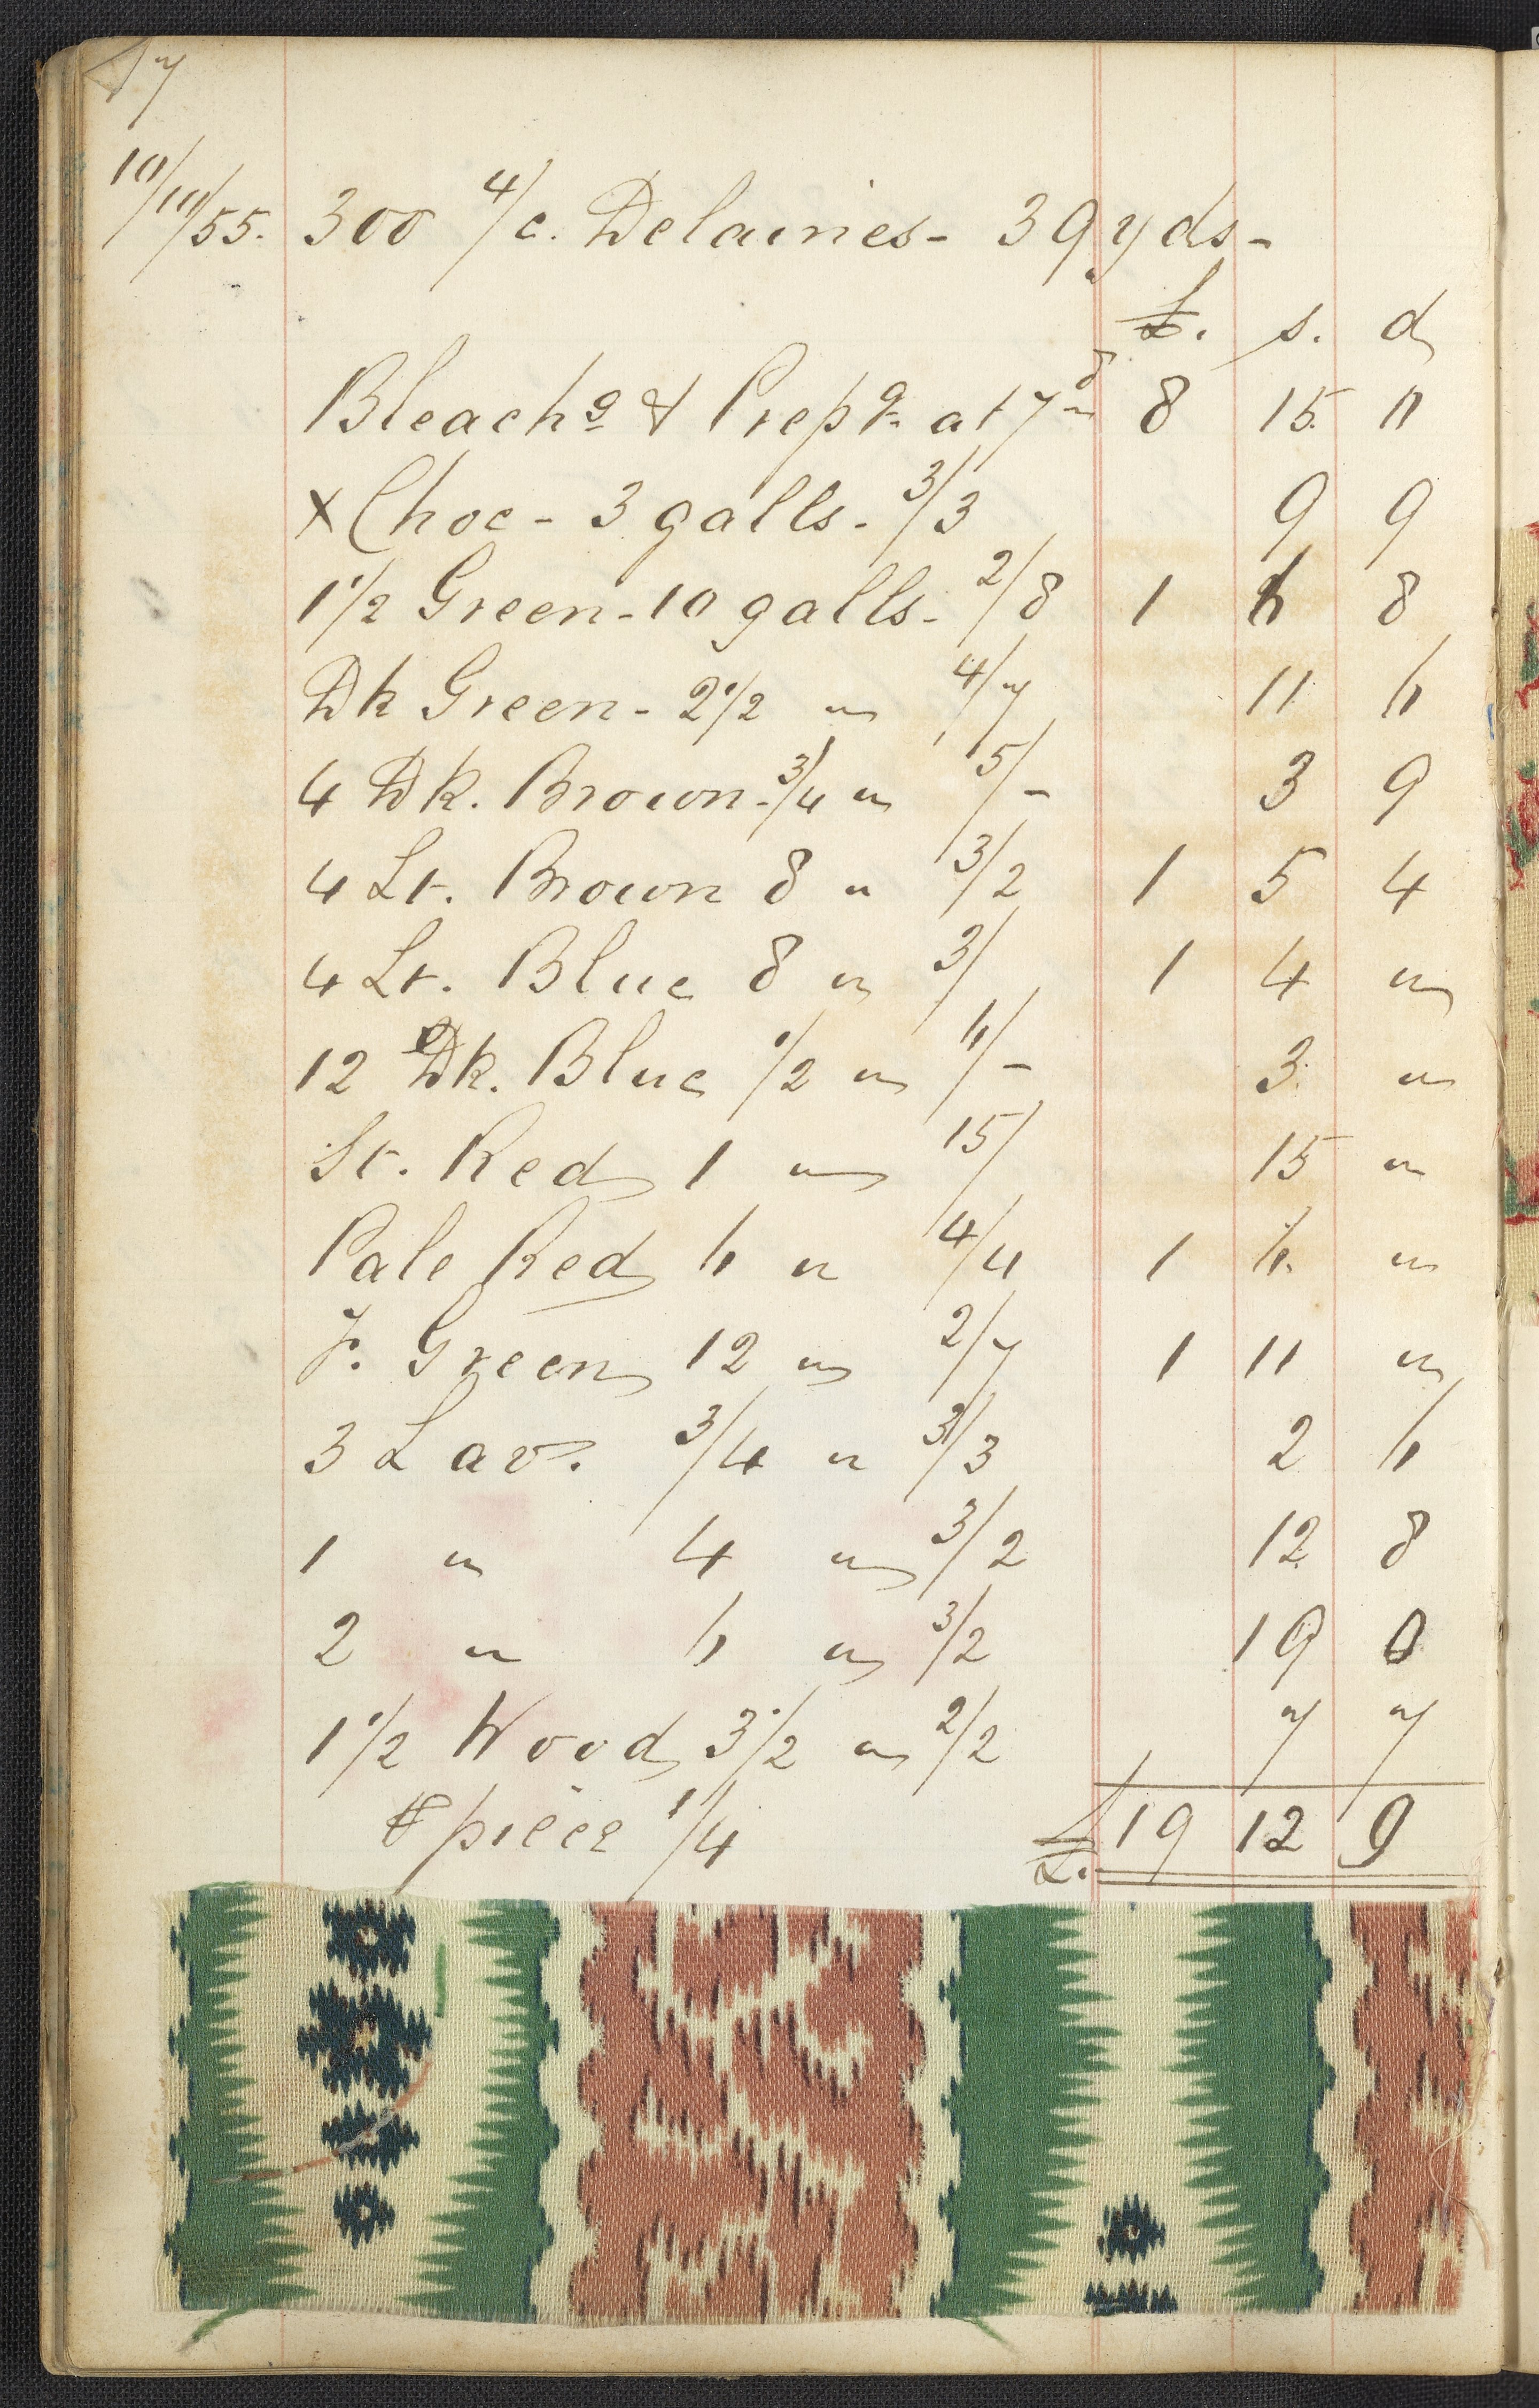 17
10/11/55. 300 4/c. Delaines - 39 yds -
£. s. d
Bleachg & Prepg at 7d 8 15 "
x Choc - 3 galls. 3/3 9 9
1 1/2 Green - 10 galls. 2/8 1 6 8
Dk Green - 2 1/2 " 4/7 11 6
4 Dk. Brown - 3/4 " 5/- 3 9
4 Lt. Brown 8 " 3/2 1 5 4
4 Lt. Blue 8 " 3/ 1 4 "
12 Dk. Blue 1/2 " 6/- 3 "
St. Red 1 " 15/ 15 "
Pale Red 6 " 4/4 1 6 "
F. Green 12 " 2/7 1 11 "
3 Lav. 3/4 " 3/3 2 6
1 " 4 " 3/2 12 8
2 " 6 " 3/2 19 0
1 1/2 Wood 3 1/2 " 2/2 7 7
℔ piece 1/4 £. 19 12 9